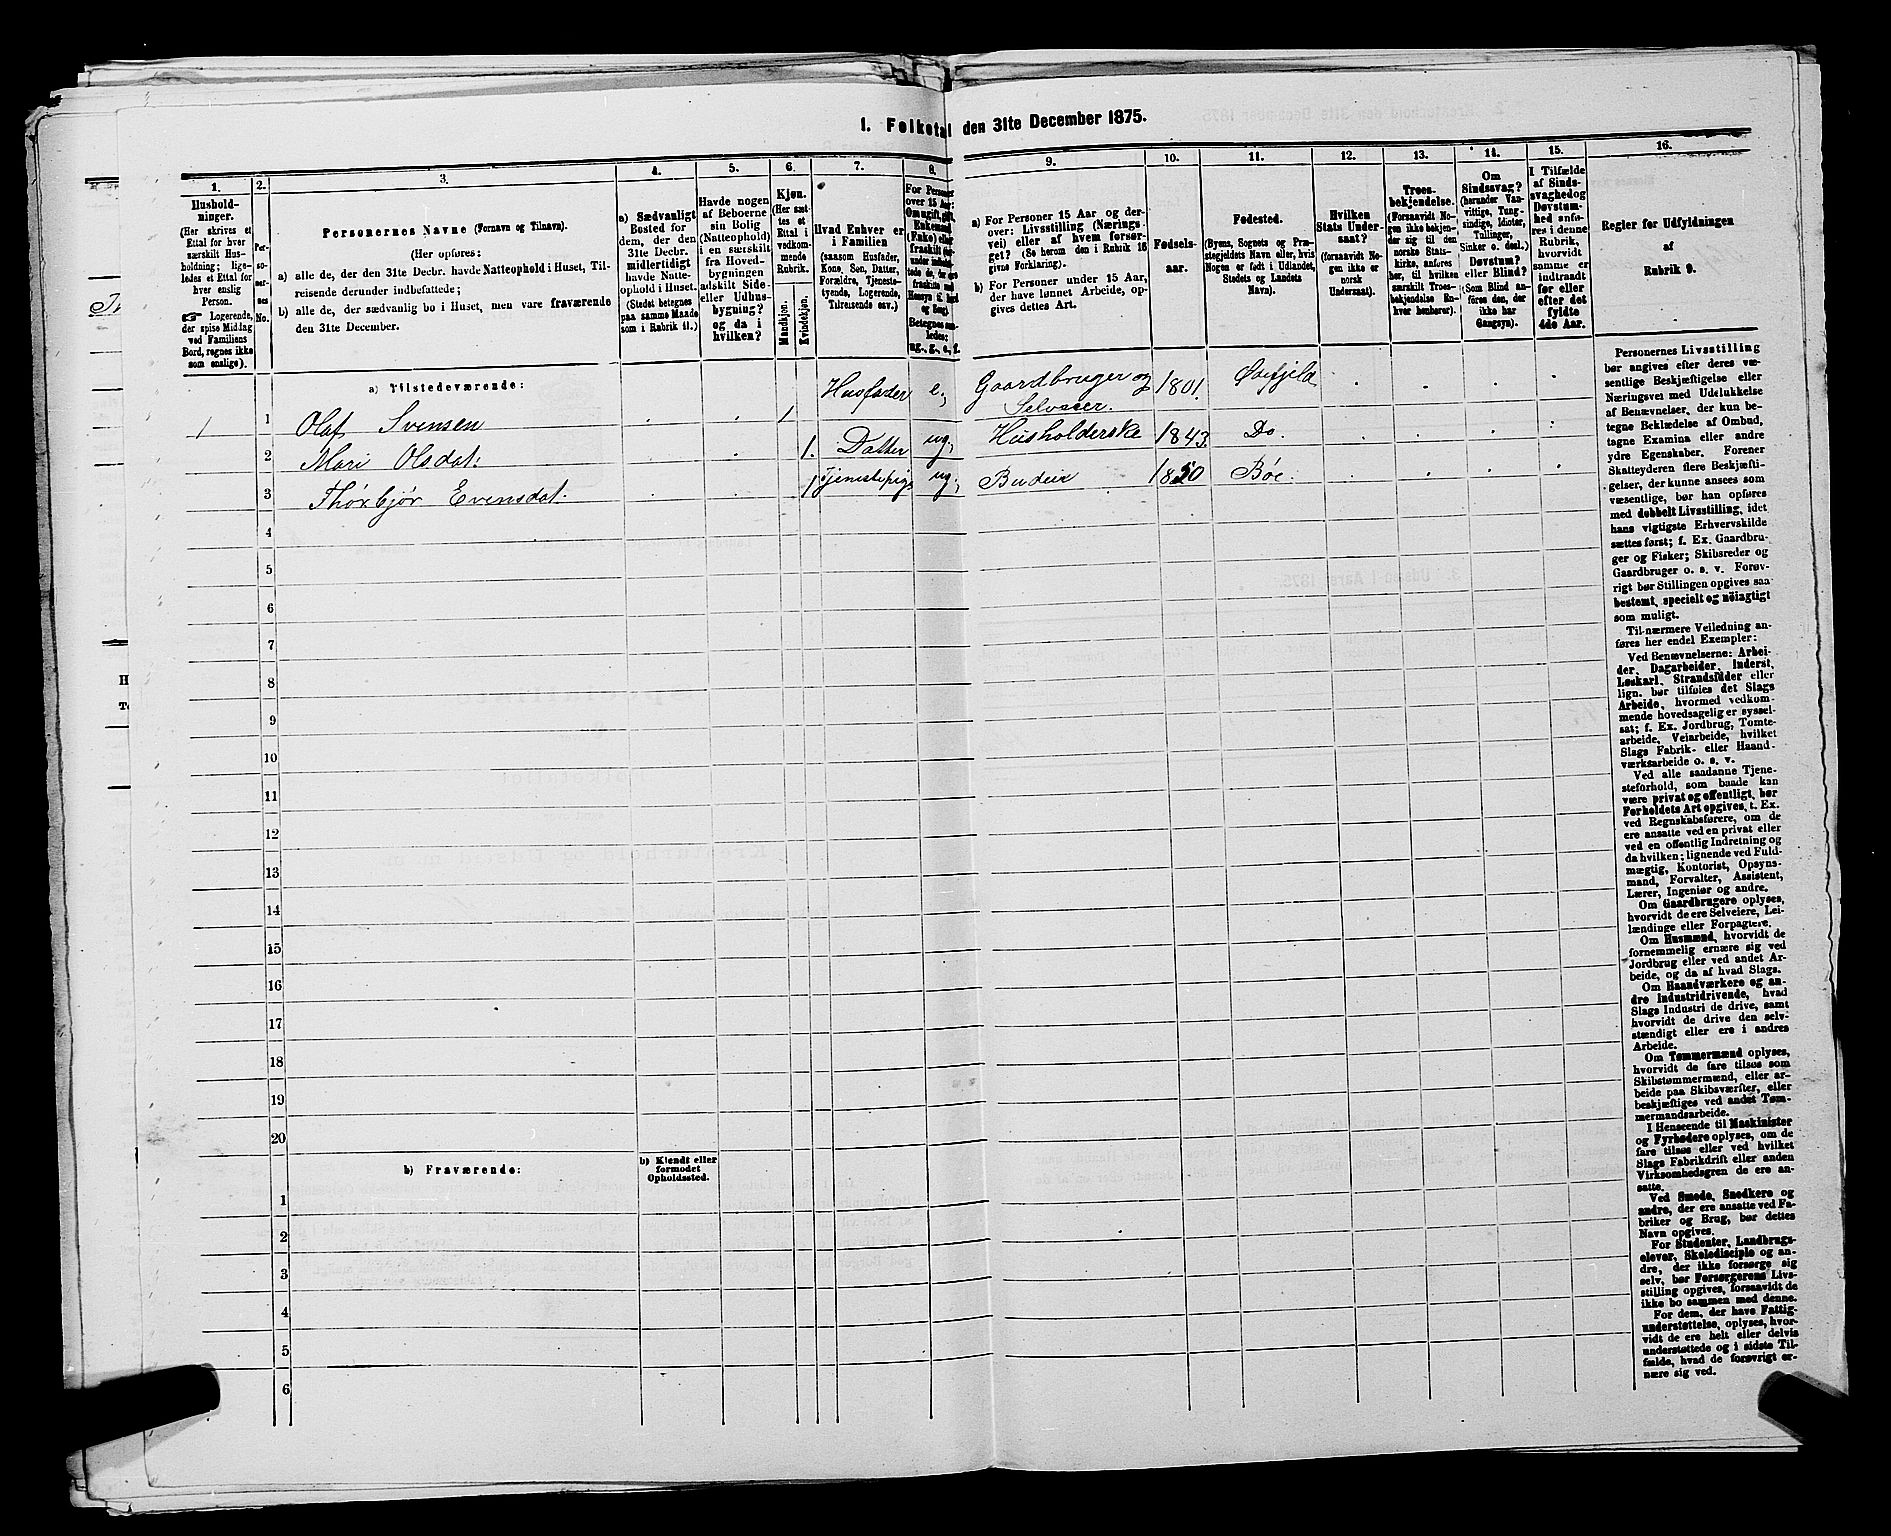 1. Folketal den 31te December 1875.
1.
Hushold-
ninger.
(Her skrives et
Ettal for hver
særskilt Hus-
holdning; lige-
ledes et Ettal for
hver enslig
Person.
☞ Logerende,
der spise Middag
ved Familiens
Bord, regnes ikke
som enslige).
2.
Per-
so-
ner-
nes
No.
3.
Personernes Navne (Fornavn og Tilnavn).
(Her opføres:
a) alle de, der den 31te Decbr. havde Natteophold i Huset, Til-
reisende derunder indbefattede;
b) alle de, der sædvanlig bo i Huset, men vare fraværende
den 31te December.
4.
a) Sædvanligt
Bosted for
dem, der den
31te Decbr.
midlertidigt
havde Natte-
ophold i Huset.
(Stedet betegnes
paa samme Maade
som i Rubrik 11.)
5.
Havde nogen
af Beboerne
sin Bolig
(Natteophold)
i en særskilt
fra Hoved-
bygningen
adskilt Side-
eller Udhus-
bygning?
og da i
hvilken?
6.
Kjøn.
(Her sæt-
tes et
Ettal i
vedkom-
mende
Rubrik.
Mandkjøn.
Kvindekjøn.
7.
Hvad Enhver er
i Familien
(saasom Husfader,
Kone, Søn, Datter,
Forældre, Tjeneste-
tyende, Logerende,
Tilreisende osv.)
8.
For Personer
over 15 Aar:
Om ugift, gift,
Enkemand
(Enke) eller
fraskilt
Betegnes saa-
ledes:
ug., g., e., f.
9.
a) For Personer 15 Aar og der-
over: Livsstilling (Nærings-
vei) eller af hvem forsør-
get? (Se herom den i Rubrik 16
givne Forklaring).
b) For Personer under 15 Aar,
der have lønnet Arbeide, op-
gives dettes Art.
10.
Fødsels-
aar.
11.
Fødested.
(Byens, Sognets og Præ-
stegjeldets Navn eller, hvis
Nogen er født i Udlandet,
Stedets og Landets
Navn).
12.
Hvilken
Stats Under-
saat?
(forsaavidt No-
gen ikke er
norsk
Undersaat).
13.
Troes-
bekjendelse.
(Forsaavidt No-
gen ikke bekjen-
der sig til den
norske Stats-
kirke, anføres
her, til hvilken
særskilt Troes-
bekjendelse En-
hver henhører).
14.
Om
Sindssvag?
(herunder Van-
vittige, Tung-
sindige, Idioter,
Tullinger,
Sinker o. desl.)
Døvstum?
eller Blind?
(Som Blind an-
føres den, der
ikke har
Gangsyn).
15.
I Tilfælde
af Sinds-
svaghed og
Døvstum-
hed anfø-
res i denne
Rubrik,
hvorvidt
samme er
indtraadt
før eller
efter det
fyldte
4de Aar.
16.
Regler for Udfyldningen
af
Rubrik 9.
a) Tilstedeværende:
1 1 Olaf Svensen 1 Husfader e., Gaardbruger og Selveier. 1801. Øiefjeld
2 Mari Olsdat. 1. Datter ug., Husholderske 1843. Do.
3 Thorbjør Evensdat. 1 Tjenestepige ug., Budeie 1850 Bøe.
4
5
6
7
8
9
10
11
12
13
14
15
16
17
18
19
20
b) Fraværende:
b) Kjendt eller
formodet
Opholdssted.
1
2
3
4
5
6
Personernes Livsstilling
bør angives efter deres væ-
sentlige Beskjæftigelse eller
Næringsvei med Udelukkelse
af Benævnelser, der kun be-
tegne Beklædelse af Ombud,
tagne Examina eller andre
ydre Egenskaber. Forener
Skatteyderen flere Beskjæfti-
gelser, der kunne ansees som
væsentlige, bør han opføres
med dobbelt Livsstilling, idet
hans vigtigste Erhvervskilde
sættes først; f. Ex. Gaardbru-
ger og Fisker; Skibsreder og
Gaardbruger o. s. v. Forøv-
rigt bør Stillingen opgives saa
bestemt, specielt og nöiagtigt
som muligt.
Til nærmere Veiledning an-
føres her endel Exempler:
Ved Benævnelserne: Arbei-
der, Dagarbeider, Inderst,
Løskarl, Strandsidder eller
lign. bør tilføies det Slags
Arbeide, hvormed vedkom-
mende hovedsagelig er syssel-
sat; f. Ex. Jordbrug, Tomte-
arbeide, Veiarbeide, hvilket
Slags Fabrik- eller Haand-
værksarbeide o. s. v.
Ved alle saadanne Tjene-
steforhold, som baade kan
være privat og offentligt, bør
Forholdets Art opgives, t. Ex.
ved Regnskabsførere, om de
ere ansatte ved en privat eller
ved en offentlig Indretning og
da hvilken; lignende ved Fuld-
mægtig, Kontorist, Opsyns-
mand, Forvalter, Assistent,
Lærer, Ingeniør og andre.
Om Gaardbrugere oplyses,
hvorvidt de ere Selveiere, Lei-
lændinge eller Forpagtere.
Om Husmænd, hvorvidt de
fornemmelig ernære sig ved
Jordbrug eller ved andet Ar-
beide, og da af hvad Slags.
Om Haandværkere og an-
dre Industridrivende, hvad
Slags Industri de drive, samt
hvorvidt de drive den selv-
stændigt eller ere i andres
Arbeide.
Om Tømmermænd oplyses,
hvorvidt de fare tilsøs som
Skibstømmermænd, eller ar-
beide paa Skibsværfter, eller
beskjæftiges ved andet Tøm-
mermandsarbeide.
I Henseende til Maskinister
og Fyrbødere oplyses, om de
fare tilsøs eller ved hvilket
Slags Fabrikdrift eller anden
Virksomhedsgren de ere an-
satte.
Ved Smede, Snedkere og
andre, der ere ansatte ved Fa-
briker og Brug, bør dettes
Navn opgives.
For Studenter, Landbrugs-
elever, Skoledisciple og an-
dre, der ikke forsørge sig
selv, bør Forsørgerens Livs-
stilling opgives, forsaavidt de
ikke bo sammen med denne.
For dem, der have Fattig-
understøttelse, oplyses, hvor-
vidt de ere helt eller delvis
understøttede og i sidste Til-
fælde, hvad de forøvrigt er-
nære sig ved.